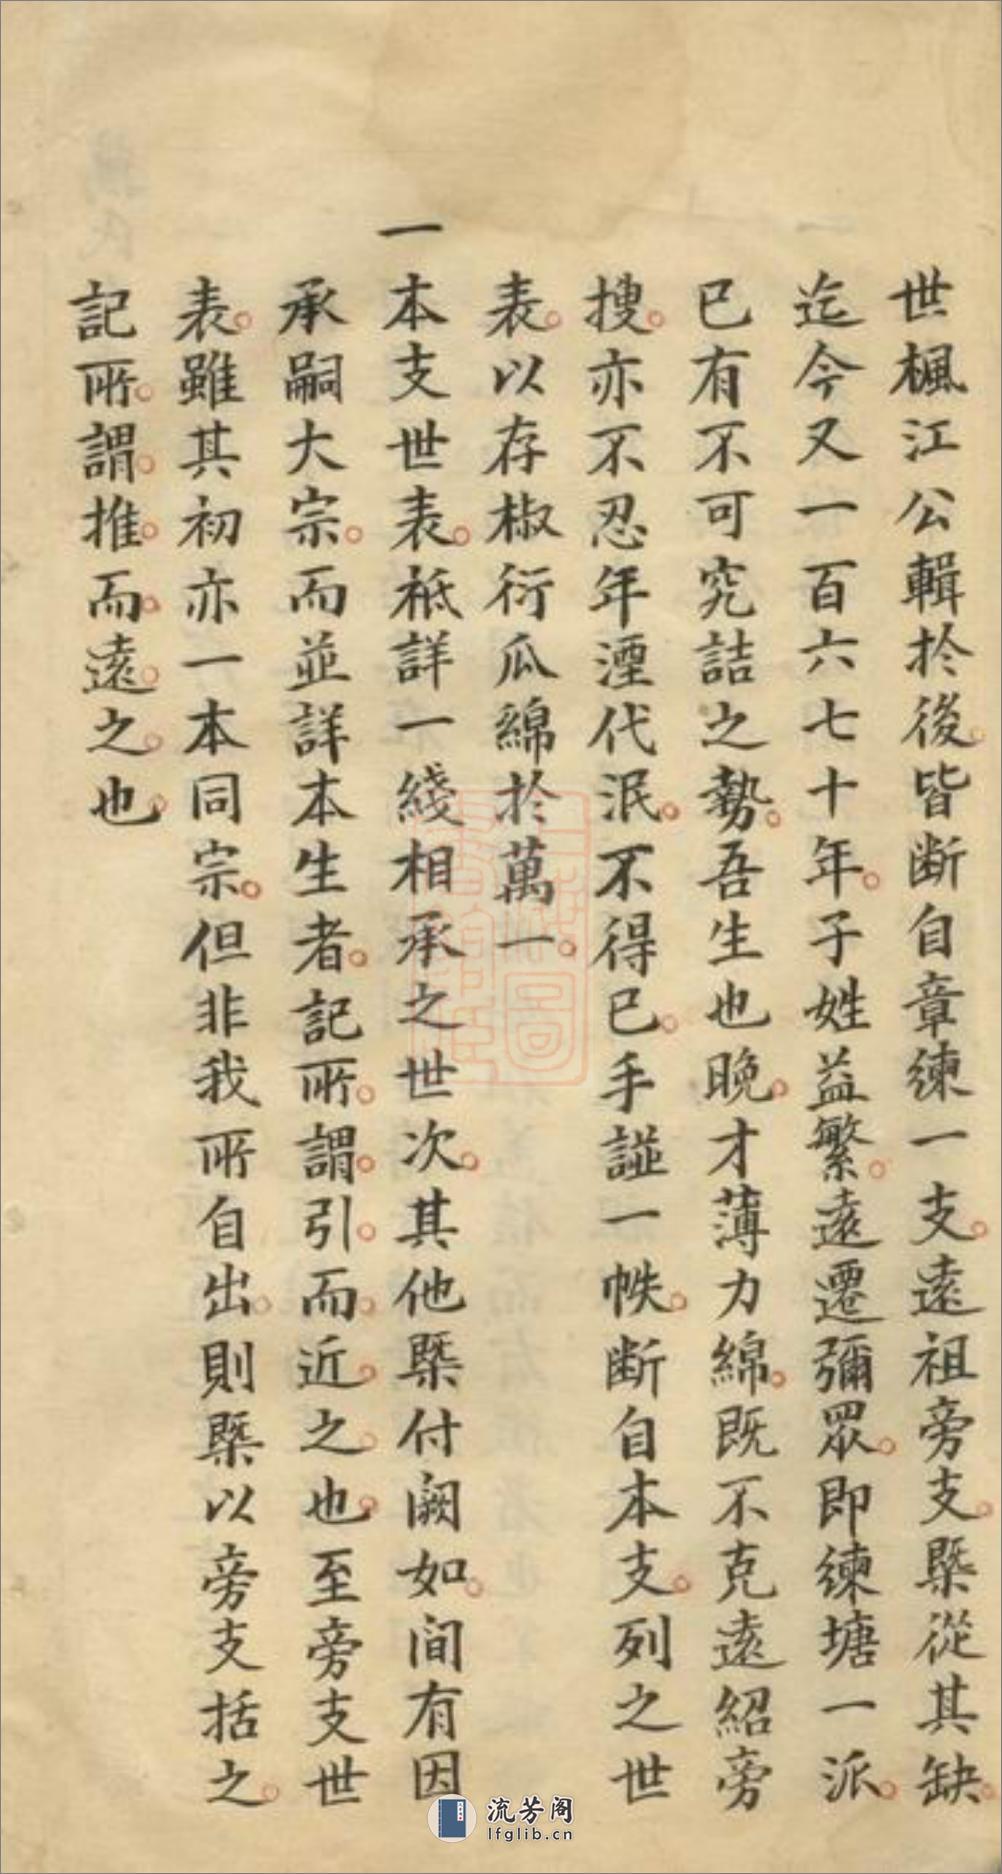 世楓江公輯於後皆断自章練一支遠祖旁支槩從其缺
迄今又一百六七十年子姓益繁遠遷彌眾即練塘一派
已有不可究詰之勢吾生也晚才薄力綿既不克遠紹旁
搜亦不忍年湮代泯不得已手譿一帙断自本支列之世
表以存椒衍瓜綿於萬一
一本支世表祗詳一綫相承之世次其他槩付闕如间有因
承嗣大宗而並詳本生者記所謂引而近之也至旁支世
表雖其初亦一本同宗但非我所自出則槩以旁支括之
記所謂推而遠之也
流芳阁
lfglib.cn